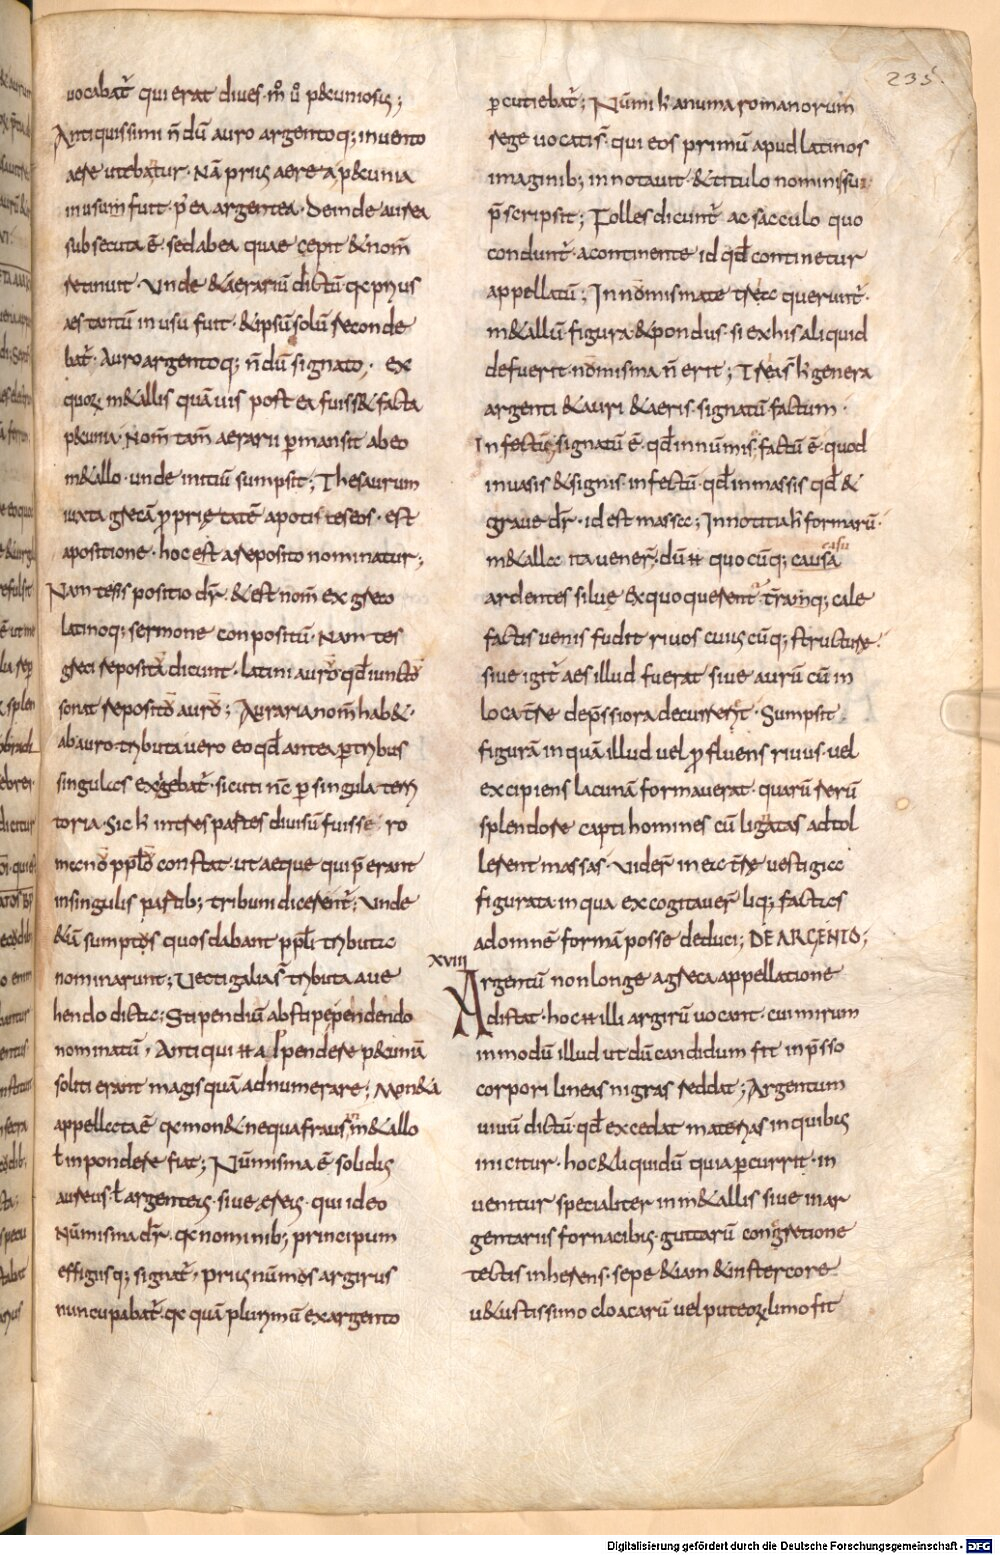 235.
vocabat̄ qui erat dives· m̊ ů p&cuniosus;
Antiquissimi n̄dū auro argentoq; invento
aere utebatur· Nā prius aerea p&cunia
in usum fuit· p̄ ea argentea· Deinde aurea
subsecuta ē· sed ab ea quae cępit & nom̄
retinuit· Unde & aerariū dictū· qc prius
aes tantū in usu fuit· & ipsū solū reconde
bat̄· Auro argentoq; n̄dū signato,· ex
quoꝝ m&allis quāvis post ea fuiss& facta
p&cunia· Nom̄ tam̄ aerarii p̱mansit ab eo
m&allo· unde initiū sumpsit; Thesaurum
iuxta grecā ꝓprię tatē apo tis teseos· est
a positione· hoc est a reposito nominatur;
Nam tesis positio dr̄· & est nom̄ ex greco
latinoq; sermone conpositū· Nam tes
greci repositū dicunt· latini aurō· qđ iunctō
sonat repositō aurō; Auraria nom̄ hab&·
ab auro· tributa vero eo qđ antea p̱ tribus
singulas exigebat̄· sicuti nc̄ p̱ singula terri
toria· Sic h̄ in tres partes divisū fuisse ro
manō ppl̄ō constat· ut aeque qui p̄erant
in singulis partib; tribuni dicerent̄; Unde
&iā sumptos quos dabant ppl̄i tributa
nominarunt; Vectigalia s̄ tributa a ve
hendo dicta; Stipendiū ab stipe pendendo
nominatū· Antiqui ꞇꞇ appendere p&uniā
soliti erant magis quā adnumerare; Mon&a
appellata ē qc mon& nequa fraus in m&allo
ł in pondere fiat; Nūmisma ē solidus
aureus· ł argenteus· sive ęreus· qui ideo
Nūmisma dr̄· qc nominib; principum
effigiisq; signat̄· Prius nūmos argirus
nuncupabat̄· qc quā plurimū ex argento
p̱cutiebat̄; Nūmi h̄ a numa romanorum
rege vocatis̄· qui eos primū apud latinos
imaginib; in notavit· & titulo nominis sui
p̄scripsit; Folles dicunt̄ ac sacculo quo
condunt̄· a continente id qđ continetur
appellatū; In nōmismate tria querunt̄·
m&allū· figura· & pondus· si ex his aliquid
defuerit· nomisma n̄ erit; Tria s̄ h̄ genera
argenti & auri & aeris· signatū factum·
Infectū; signatū ē· qđ in nūmis· factū ē· quod
in vasis & signis· infectū· qđ in massis· qđ &
grave dr̄· id est massa; In notitia h̄ formarū·
m&alla ita vener̄· dū ꞇꞇ quo cūq; causa
casu
ardentes silvę ex quo querent̄ terramq; cale
factis venis fudit rivos cuius cūq; structure·
sive igit̄ aes illud fuerat sive aurū cū in
loca tr̄e depressiora decurrerent· Sumpsit·
figurā in quā illud vel ꝓfluens rivus· vel
excipiens lacunā formaverat· quarū rerū
splendore capti homines cū ligatas adtol
lerent massas· Vider̄ in ea tr̄ę vestigia
figurata in qua excogitaver̄ liq; factas
ad omnē formā posse deduci; DE ARGENTO;
XVIII
Argentū non longe a greca appellatione
distat· hoc ꞇꞇ illi argirū vocant· cui mirum
in modū illud ut dū candidum sit in p̄sso
corpori lineas nigras reddat; Argentum
vivū dictū· qđ excedat materias in quibus
inicitur· hoc & liquidū quia p̱currit· in
venitur specialiter in m&allis sive in ar
gentariis fornacibus· guttarū congretione
tectis inherens· sepe &iam & in stercore
v&ustissimo cloacarū vel puteoꝝ limo fit
Digitalisierung gefördert durch die Deutsche Forschungsgemeinschaft - DFG